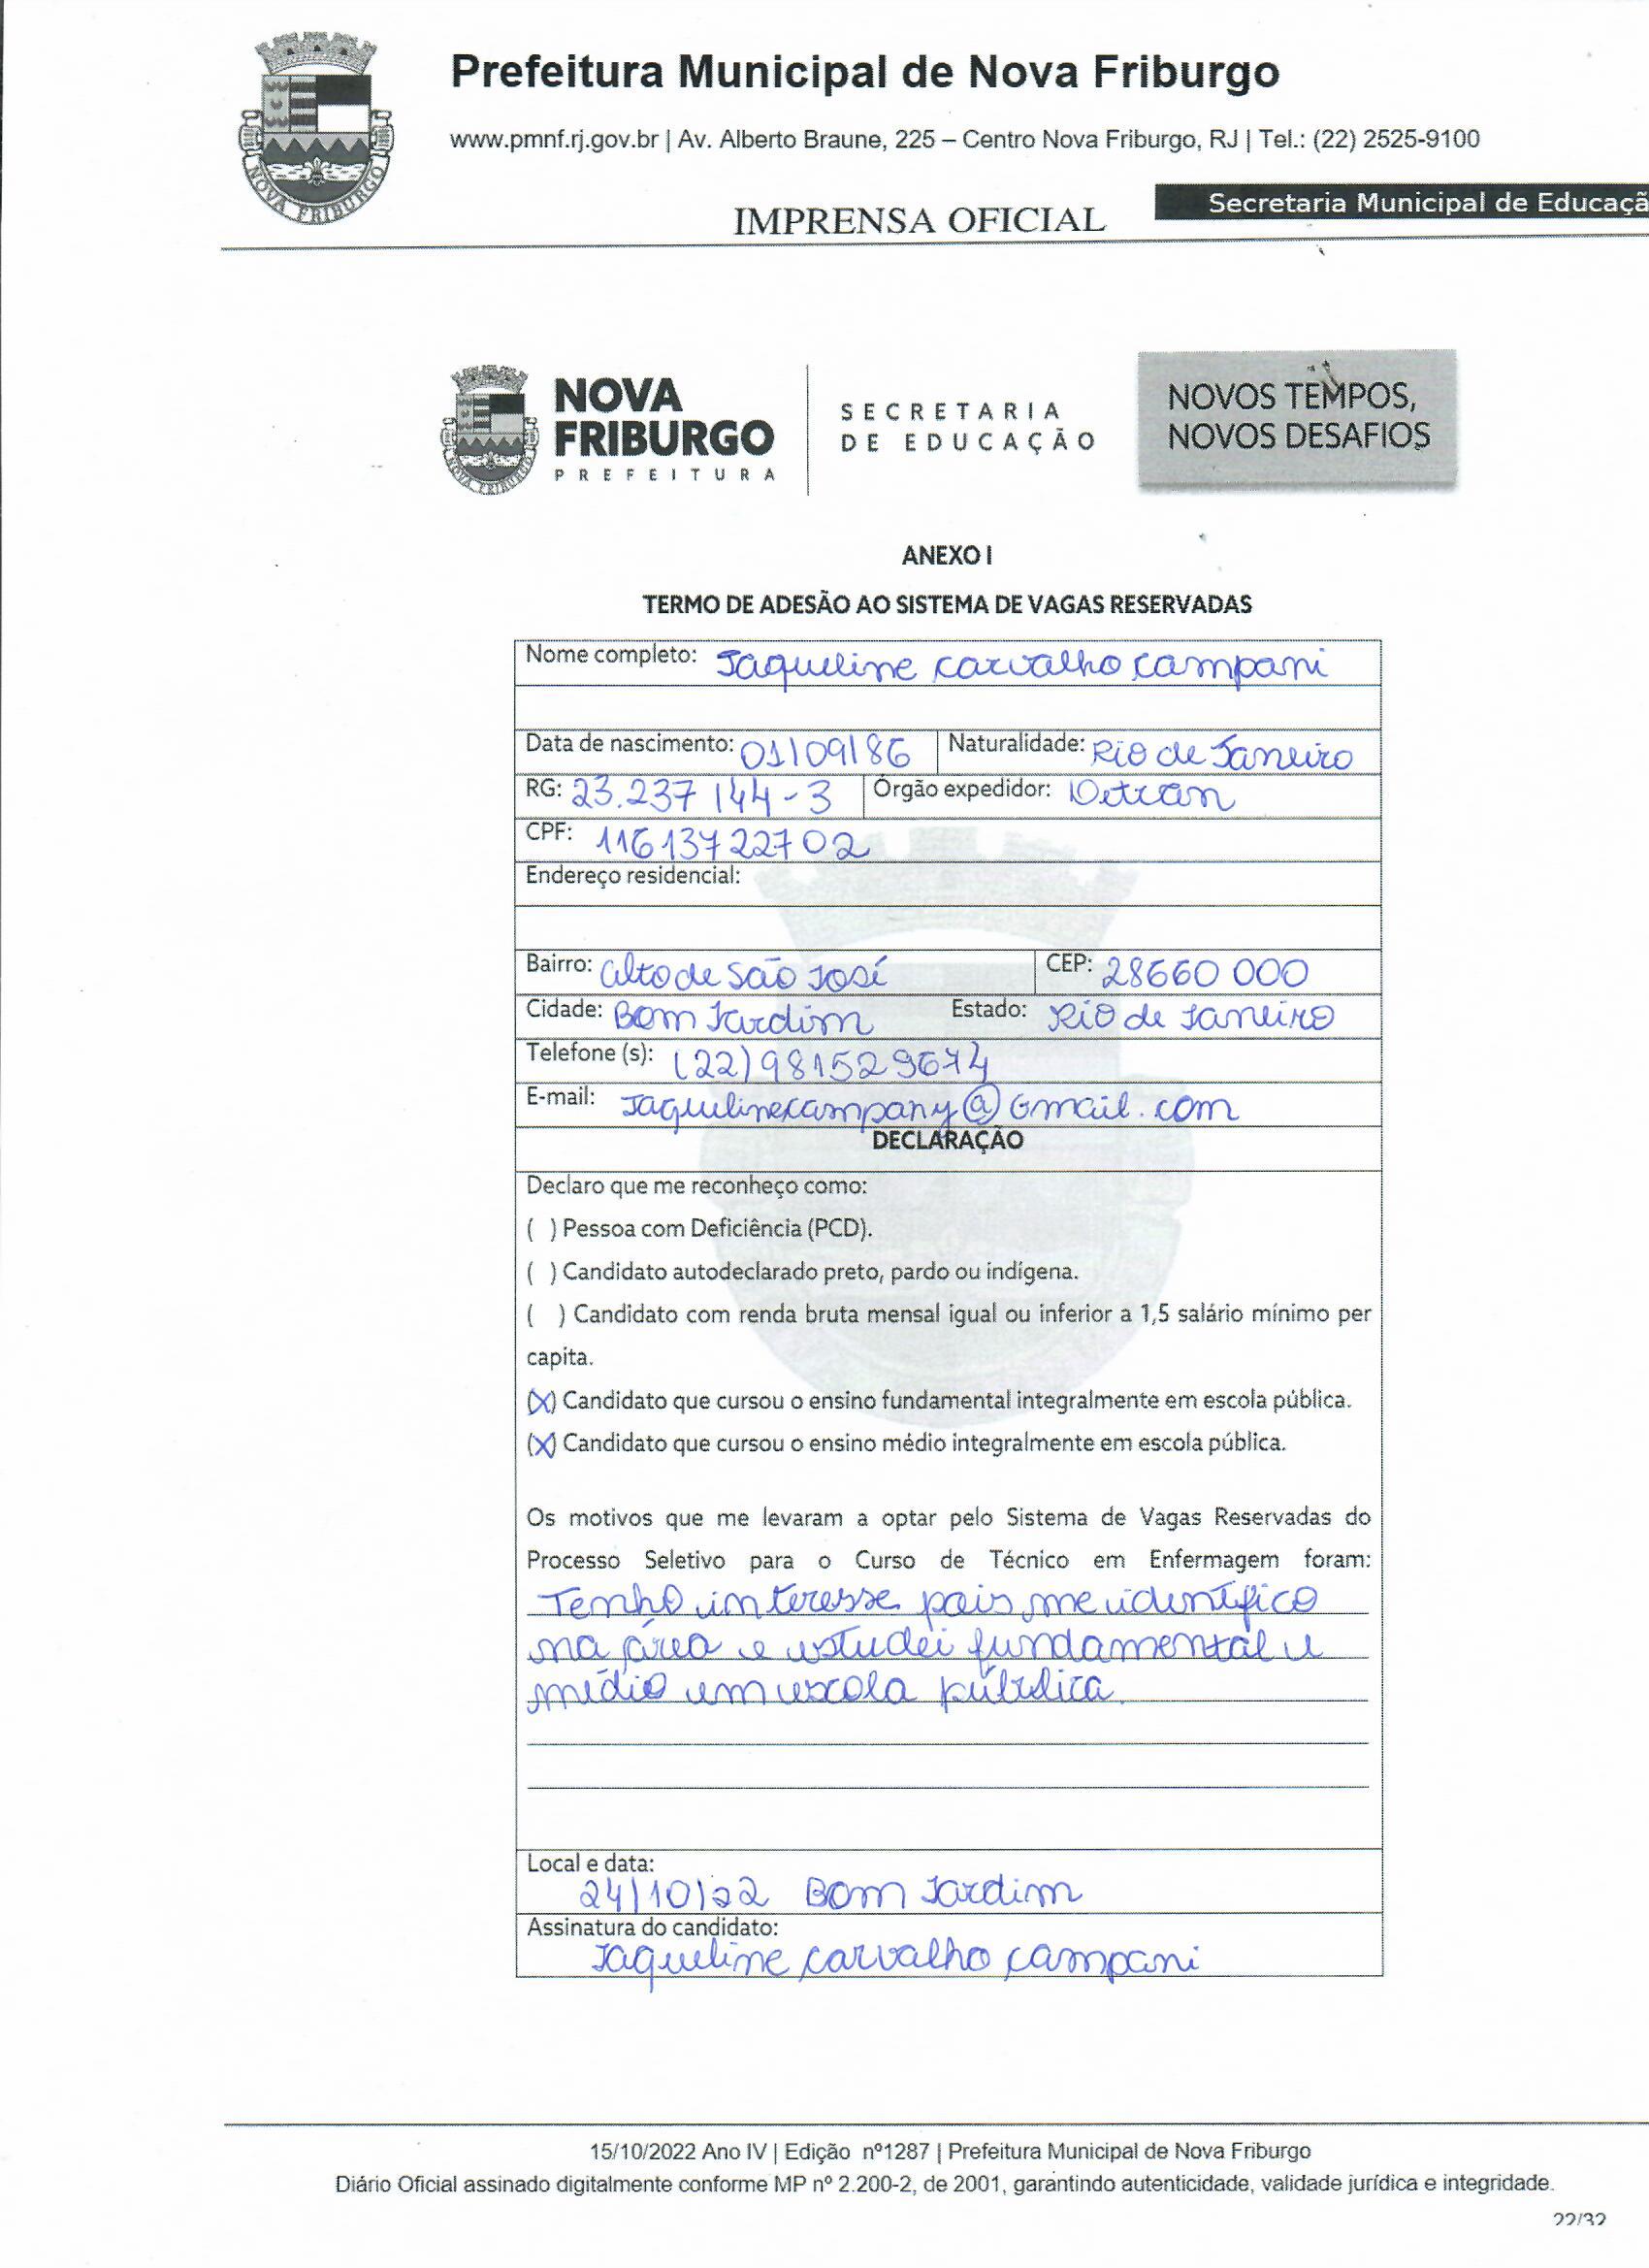 Prefeitura Municipal de Nova Friburgo
www.pmnf.rj.gov.br | Av. Alberto Braune, 225 – Centro Nova Friburgo, RJ | Tel.: (22) 2525-9100
IMPRENSA OFICIAL
Secretaria Municipal de Educaçã
NOVA FRIBURGO
NOVA
FRIBURGO
PREFEITURA
SECRETARIA
DE EDUCAÇÃO
NOVOS TEMPOS,
NOVOS DESAFIOS
ANEXO I
TERMO DE ADESÃO AO SISTEMA DE VAGAS RESERVADAS
Nome completo: Jaqueline Carvalho Campani
Data de nascimento: 01/09/86 Naturalidade: Rio de Janeiro
RG: 23.237 144-3 Órgão expedidor: Detran
CPF: 11613722702
Endereço residencial:
Bairro: Alto de São José CEP: 28660 000
Cidade: Bom Jardim Estado: Rio de Janeiro
Telefone (s): (22) 981529674
E-mail: Jaquelinecampany@Gmail.com
DECLARAÇÃO
Declaro que me reconheço como:
( ) Pessoa com Deficiência (PCD).
( ) Candidato autodeclarado preto, pardo ou indígena.
( ) Candidato com renda bruta mensal igual ou inferior a 1,5 salário mínimo per
capita.
(X) Candidato que cursou o ensino fundamental integralmente em escola pública.
(X) Candidato que cursou o ensino médio integralmente em escola pública.
Os motivos que me levaram a optar pelo Sistema de Vagas Reservadas do
Processo Seletivo para o Curso de Técnico em Enfermagem foram:
Tenho interesse pois me identifico
na área e estudei fundamental e
médio em escola pública.
Local e data:
24/10/22 Bom Jardim
Assinatura do candidato:
Jaqueline Carvalho Campani
15/10/2022 Ano IV | Edição nº1287 | Prefeitura Municipal de Nova Friburgo
Diário Oficial assinado digitalmente conforme MP nº 2.200-2, de 2001, garantindo autenticidade, validade jurídica e integridade.
22/32